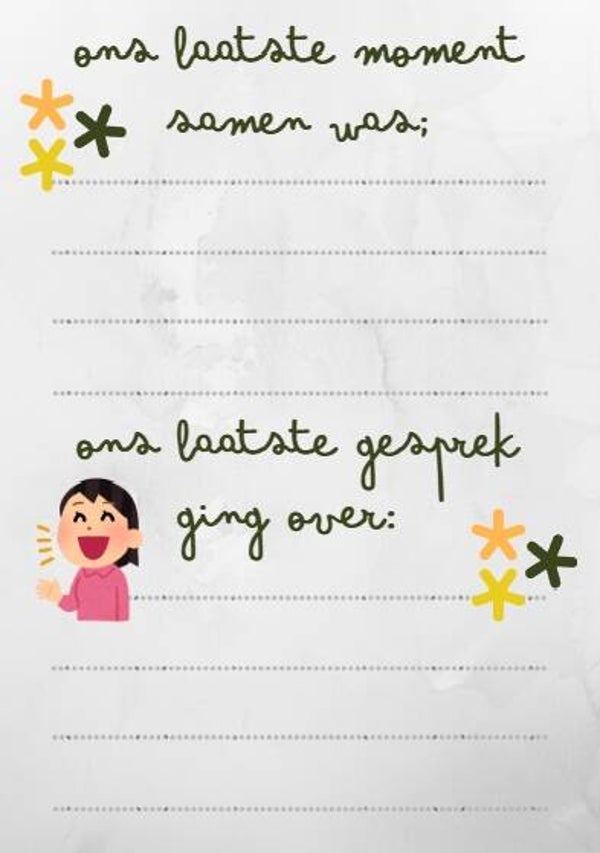 ons laatste moment
samen was;
ons laatste gesprek
ging over: